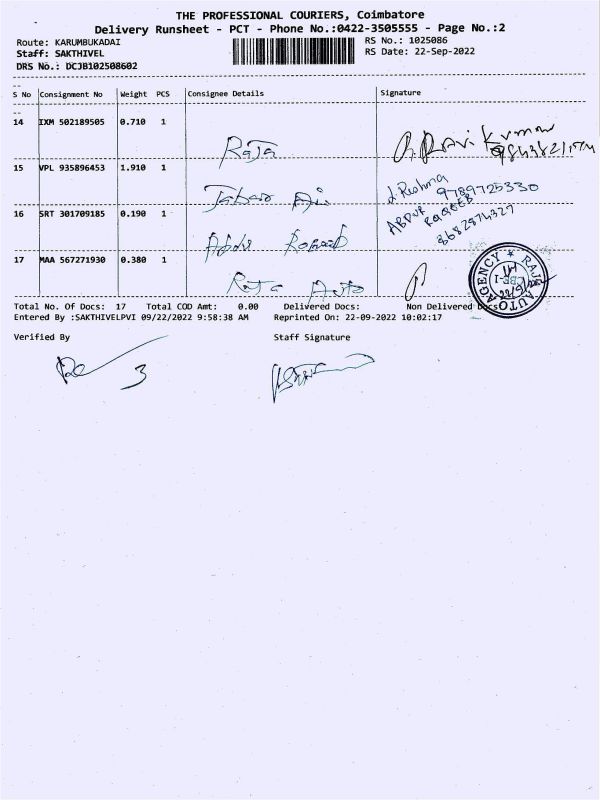 THE PROFESSIONAL COURIERS, Coimbatore
Delivery Runsheet - PCT - Phone No.:0422-3505555 - Page No.:2
Route: KARUMBUKADAI
Staff: SAKTHIVEL
DRS No.: DCJB102508602
RS No.: 1025086
RS Date: 22-Sep-2022
S No Consignment No Weight PCS Consignee Details Signature
14 IXM 502189505 0.710 1
Raja
15 VPL 935896453 1.910 1
J. Reshma
9789725330
16 SRT 301709185 0.190 1
ABDUR
RAQEEB
8682974327
17 MAA 567271930 0.380 1
Auto
AUTO AGENCY ★ RAJA
CBE-1
Total No. Of Docs: 17 Total COD Amt: 0.00 Delivered Docs: Non Delivered Docs
Entered By :SAKTHIVELPVI 09/22/2022 9:58:38 AM Reprinted On: 22-09-2022 10:02:17
Verified By Staff Signature
3